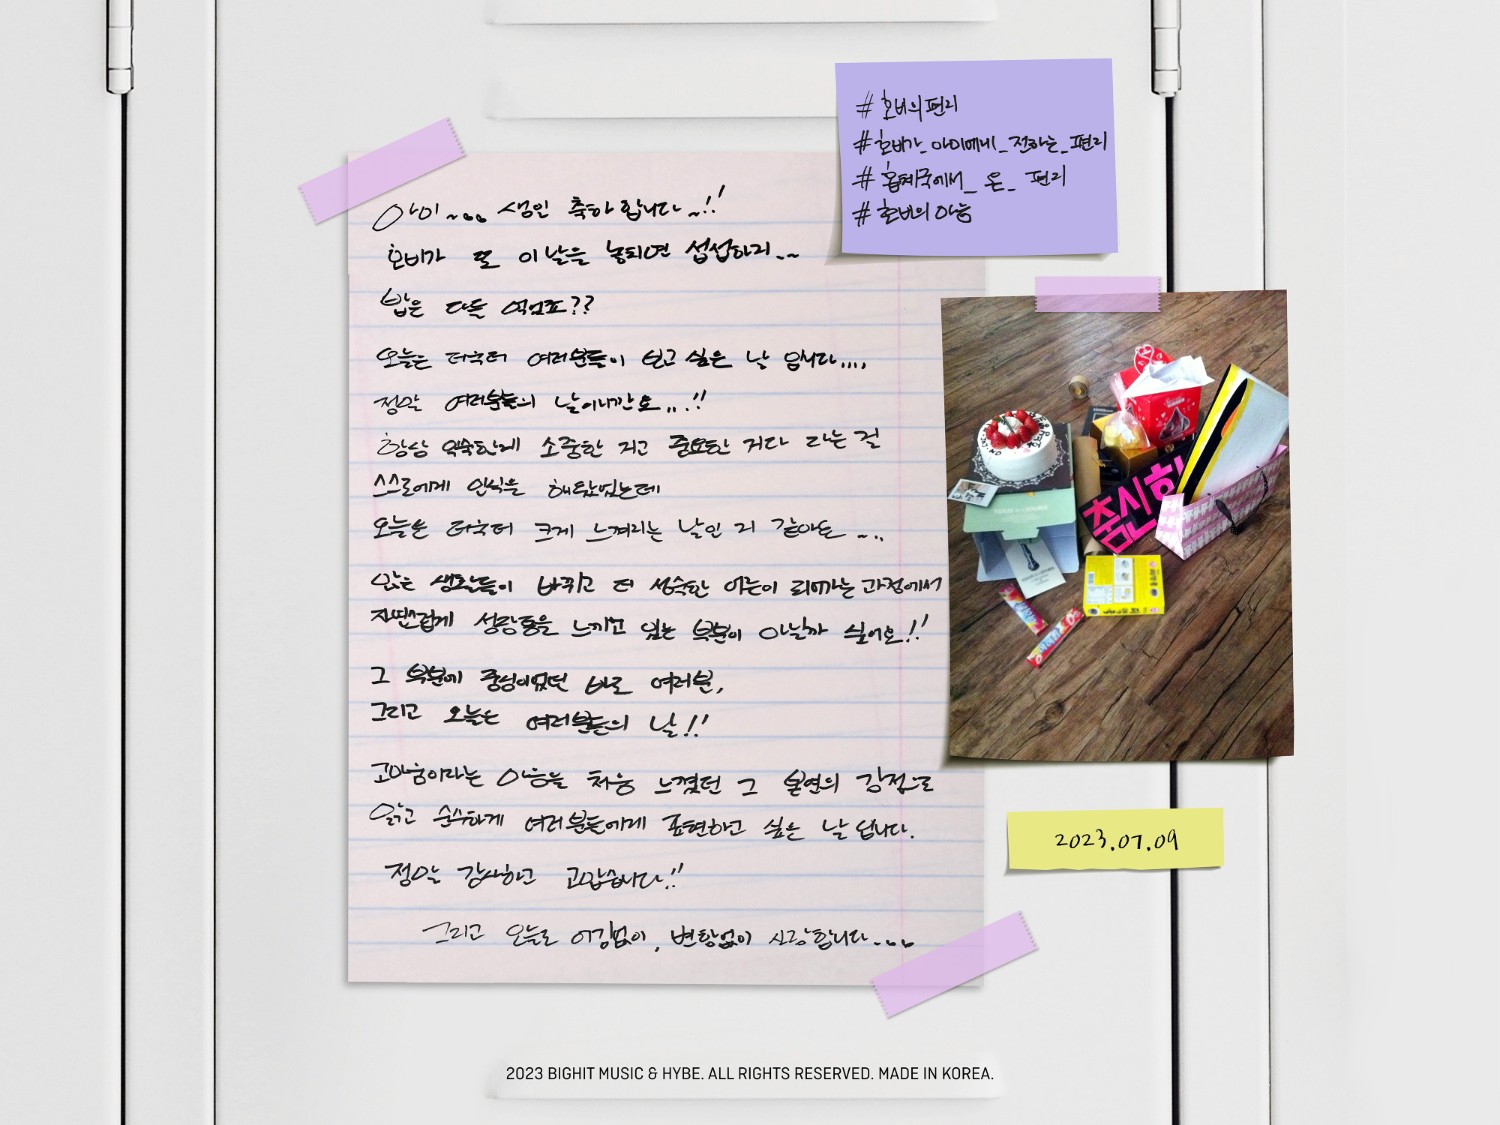 아미~... 생일 축하합니다~!!
호비가 또 이 날을 놓치면 섭섭하지..~
밥은 다들 먹었죠??
오늘은 더욱더 여러분들이 보고 싶은 날 입니다....
정말 여러분들의 날이니깐요...!!
항상 익숙한게 소중한 거고 중요한 거다 라는 걸
스스로에게 인식을 해왔었는데
오늘은 더욱더 크게 느껴지는 날인 거 같아요 ~..
많은 생활들이 바뀌고 더 성숙한 어른이 되어가는 과정에서
자연스럽게 성장통을 느끼고 있는 부분이 아닐까 싶어요!!
그 부분에 중심이었던 바로 여러분,
그리고 오늘은 여러분들의 날!!
고마움이라는 마음을 처음 느꼈던 그 본연의 감정으로
맑고 순수하게 여러분들에게 표현하고 싶은 날 입니다.
정말 감사하고 고맙습니다!!
그리고 오늘도 어김없이, 변함없이 사랑합니다....
#호비의편지
#호비가_아미에게_전하는_편지
#홉체국에서_온_편지
#호비의마음
춤신
2023.07.09
2023 BIGHIT MUSIC & HYBE. ALL RIGHTS RESERVED. MADE IN KOREA.